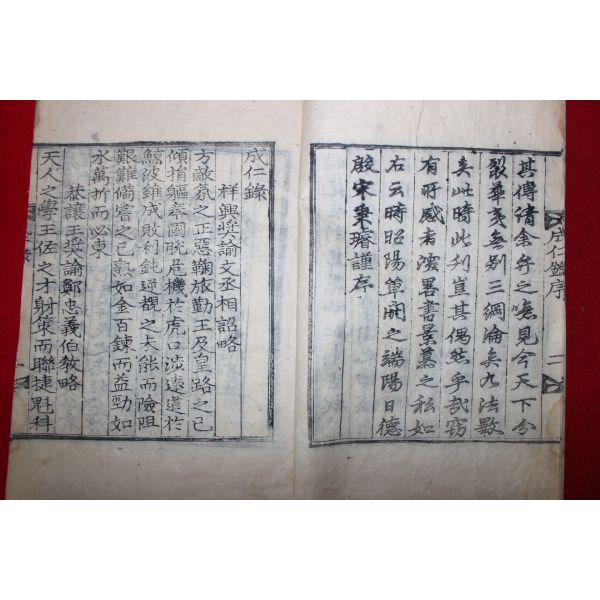 其傳請余弁之嘅見今天下分
裂華夷無別三綱淪矣九法斁
矣此時此刊豈其偶然乎哉窃
有所感者澟畧書景慕之私如
右云時昭陽單閼之端陽日德
殷宋秉璿謹序
成仁錄序
二
成仁錄
祥興奬諭文丞相詔略
方敵氛之正惡鞠旅勤王及皇路之已
傾捐軀秦國脫危機於虎口涉遠道於
鯨波雖成敗利鈍逆覩之未能而險阻
艱難備嘗之已熟如金百鍊而益勁如
水萬折而必東
恭讓王奬諭鄭忠義伯敎略
天人之學王佐之才射策而聯捷魁科